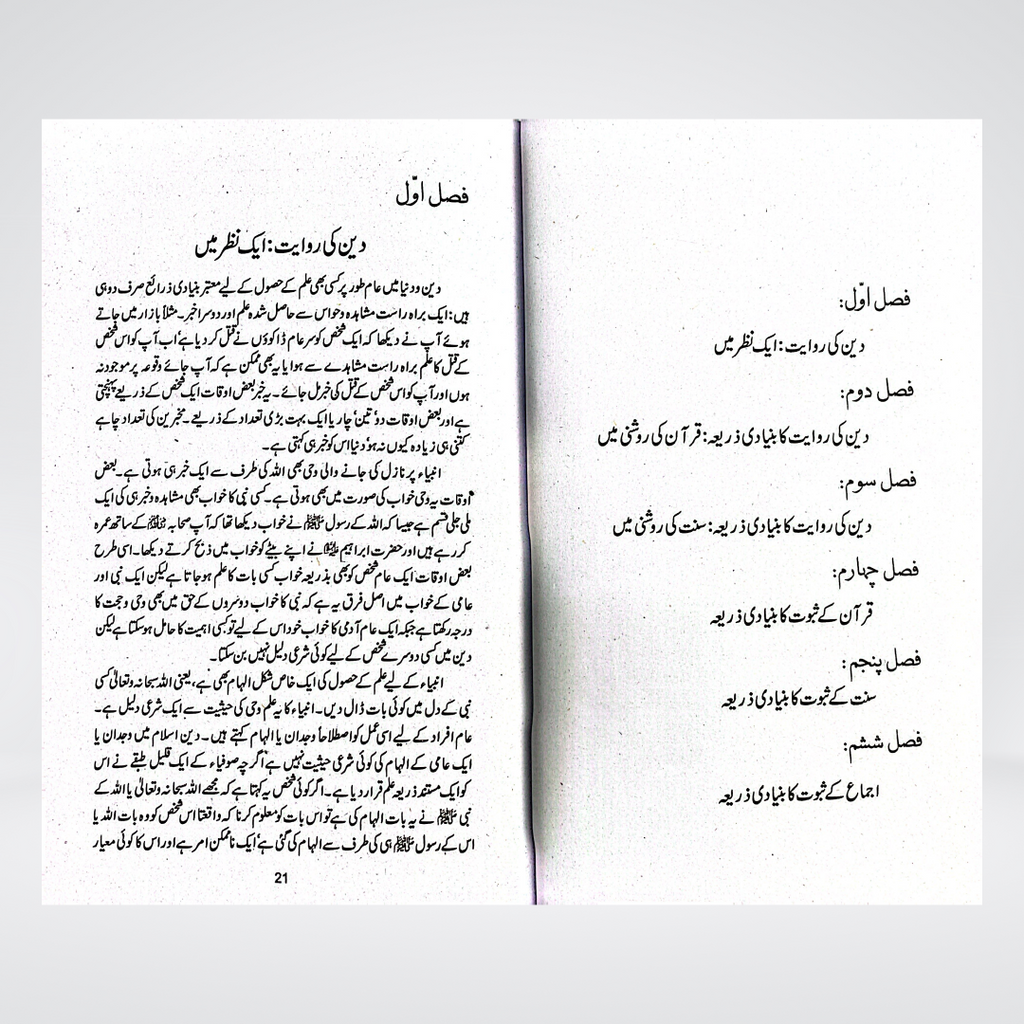 فصل اوّل:
دین کی روایت: ایک نظر میں
فصل دوم:
دین کی روایت کا بنیادی ذریعہ: قرآن کی روشنی میں
فصل سوم:
دین کی روایت کا بنیادی ذریعہ: سنت کی روشنی میں
فصل چہارم:
قرآن کے ثبوت کا بنیادی ذریعہ
فصل پنجم:
سنت کے ثبوت کا بنیادی ذریعہ
فصل ششم:
اجماع کے ثبوت کا بنیادی ذریعہ
فصل اوّل
دین کی روایت: ایک نظر میں
دین و دنیا میں عام طور پر کسی بھی علم کے حصول کے لیے معتبر بنیادی ذرائع صرف دو ہی
ہیں: ایک براہ راست مشاہدہ و حواس سے حاصل شدہ علم اور دوسرا خبر۔ مثلاً بازار میں جاتے
ہوئے آپ نے دیکھا کہ ایک شخص کو سرعام ڈاکوؤں نے قتل کر دیا ہے‘ اب آپ کو اس شخص
کے قتل کا علم براہ راست مشاہدے سے ہوا یا یہ بھی ممکن ہے کہ آپ جائے وقوعہ پر موجود نہ
ہوں اور آپ کو اس شخص کے قتل کی خبر مل جائے۔ یہ خبر بعض اوقات ایک شخص کے ذریعے پہنچتی
ہے اور بعض اوقات دو‘ تین‘ چار یا ایک بہت بڑی تعداد کے ذریعے۔ مخبرین کی تعداد چاہے
کتنی ہی زیادہ کیوں نہ ہو‘ دنیا اس کو خبر ہی کہتی ہے۔
انبیاء پر نازل کی جانے والی وحی بھی اللہ کی طرف سے ایک خبر ہی ہوتی ہے۔ بعض
اوقات یہ وحی خواب کی صورت میں بھی ہوتی ہے۔ کسی نبی کا خواب بھی مشاہدہ و خبر ہی کی ایک
ملی جلی قسم ہے جیسا کہ اللہ کے رسول ﷺ نے خواب دیکھا تھا کہ آپ صحابہ کے ساتھ عمرہ
کر رہے ہیں اور حضرت ابراہیم نے اپنے بیٹے کو خواب میں ذبح کرتے دیکھا۔ اسی طرح
بعض اوقات ایک عام شخص کو بھی بذریعہ خواب کسی بات کا علم ہو جاتا ہے لیکن ایک نبی اور
عامی کے خواب میں اصل فرق یہ ہے کہ نبی کا خواب دوسروں کے حق میں بھی وحی و حجت کا
درجہ رکھتا ہے جبکہ ایک عام آدمی کا خواب خود اس کے لیے تو کسی اہمیت کا حامل ہو سکتا ہے لیکن
دین میں کسی دوسرے شخص کے لیے کوئی شرعی دلیل نہیں بن سکتا۔
انبیاء کے لیے علم کے حصول کی ایک خاص شکل الہام بھی ہے، یعنی اللہ سبحانہ و تعالیٰ کسی
نبی کے دل میں کوئی بات ڈال دیں۔ انبیاء کا یہ علم وحی کی حیثیت سے ایک شرعی دلیل ہے۔
عام افراد کے لیے اسی عمل کو اصطلاحاً وجدان یا الہام کہتے ہیں۔ دین اسلام میں وجدان یا
ایک عامی کے الہام کی کوئی شرعی حیثیت نہیں ہے‘ اگرچہ صوفیاء کے ایک قلیل طبقے نے اس
کو ایک مستقد ذریعہ علم قرار دیا ہے۔ اگر کوئی شخص یہ کہتا ہے کہ مجھے اللہ سبحانہ و تعالیٰ یا اللہ کے
نبی ﷺ نے یہ بات الہام کی ہے تو اس بات کو معلوم کرنا کہ واقعتاً اس شخص کو وہ بات اللہ یا
اس کے رسول ﷺ ہی کی طرف سے الہام کی گئی ہے‘ ایک ناممکن امر ہے اور اس کا کوئی معیار
21